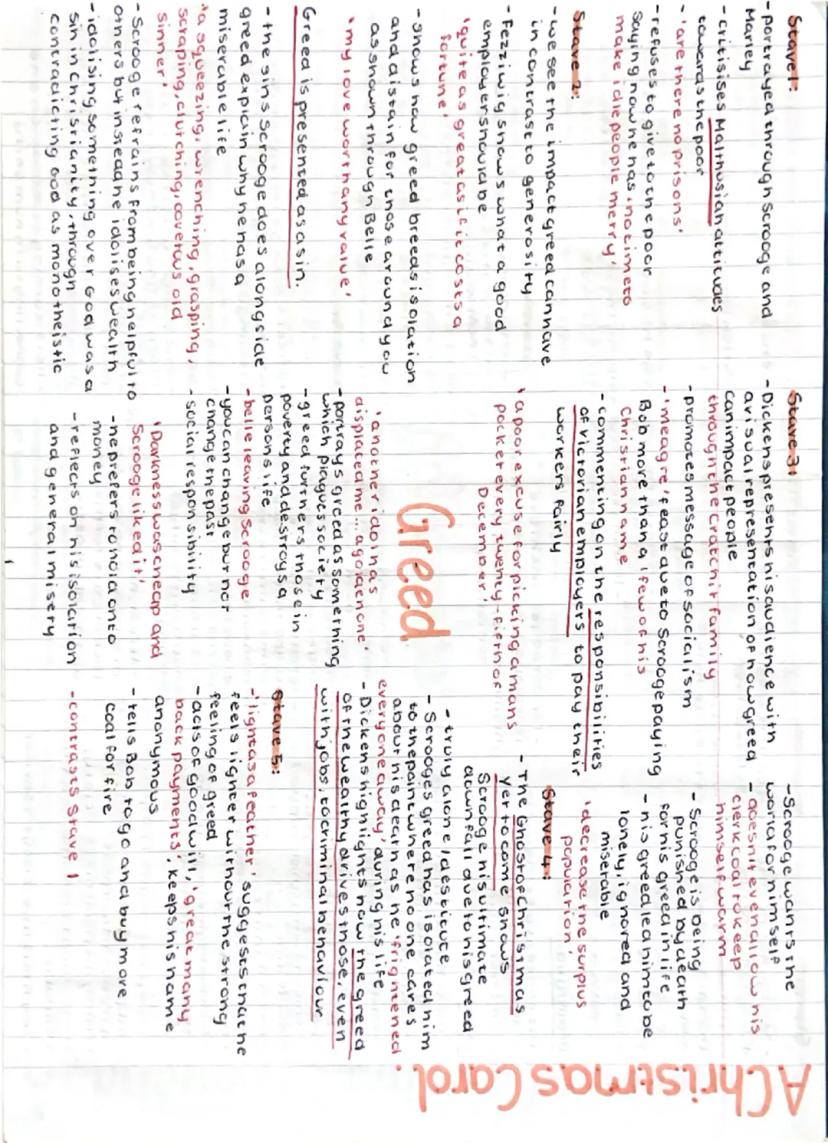 Stave 1:
- portrayed through Scrooge and
Marley
- critisises Malthusian attitudes
towards the poor
- 'are there no prisons'
- refuses to give to the poor
saying now he has 'no time to
make idle people merry'
Stave 2:
- we see the impact greed can have
in contrast to generosity
- Fezziwig shows what a good
employer should be
'quite as great as if it costs a
fortune'
- shows how greed breeds isolation
and distain for those around you
as shown through Belle
'my love worth any value'
Greed is presented as a sin.
- the sins Scrooge does alongside
greed explain why he has a
miserable life
'a squeezing, wrenching, grasping,
scraping, clutching, covetous old
sinner'
- Scrooge refrains from being helpful to
others but instead he idolises wealth
- idolising something over God was a
sin in Christianity, through
contradicting God as monotheistic
Stave 3:
- Dickens presents his audience with
a visual representation of how greed
can impact people
through the Cratchit family
- promotes message of socialism
- 'meagre' feast due to Scrooge paying
Bob more than a 'few of his
Christian name
- commenting on the responsibilities
of Victorian employers to pay their
workers fairly
'a poor excuse for picking a mans
pocket every twenty-fifth of
December'
Greed
'another idol has
displaced me... a golden one'
- portrays greed as something
which plagues society
- greed furthers those in
poverty and destroys a
persons life
- belle leaving Scrooge
- you can change but not
change the past
- social responsibility
'Darkness was cheap and
Scrooge liked it'
- he prefers to hold onto
money
- reflects on his isolation
and general misery
- Scrooge wants the
world for himself
- doesnt even allow his
clerk coal to keep
himself warm
- Scrooge is being
punished by death
for his greed in life
- his greed lead him to be
lonely, ignored and
miserable
'decrease the surplus
population'
Stave 4:
- The Ghost of Christmas
yet to come shows
Scrooge his ultimate
downfall due to his greed
- truly alone / destitute
- Scrooges greed has isolated him
to the point where no one cares
about his death as he 'frightened
everyone away' during his life
- Dickens highlights how the greed
of the wealthy drives those, even
with jobs, to criminal behaviour
Stave 5:
- 'light as a feather' suggests that he
feels lighter without the strong
feeling of greed
- acts of good will, 'great many
back payments', keeps his name
anonymous
- tells Bob to go and buy more
coal for fire
- contrasts Stave 1
A Christmas Carol.